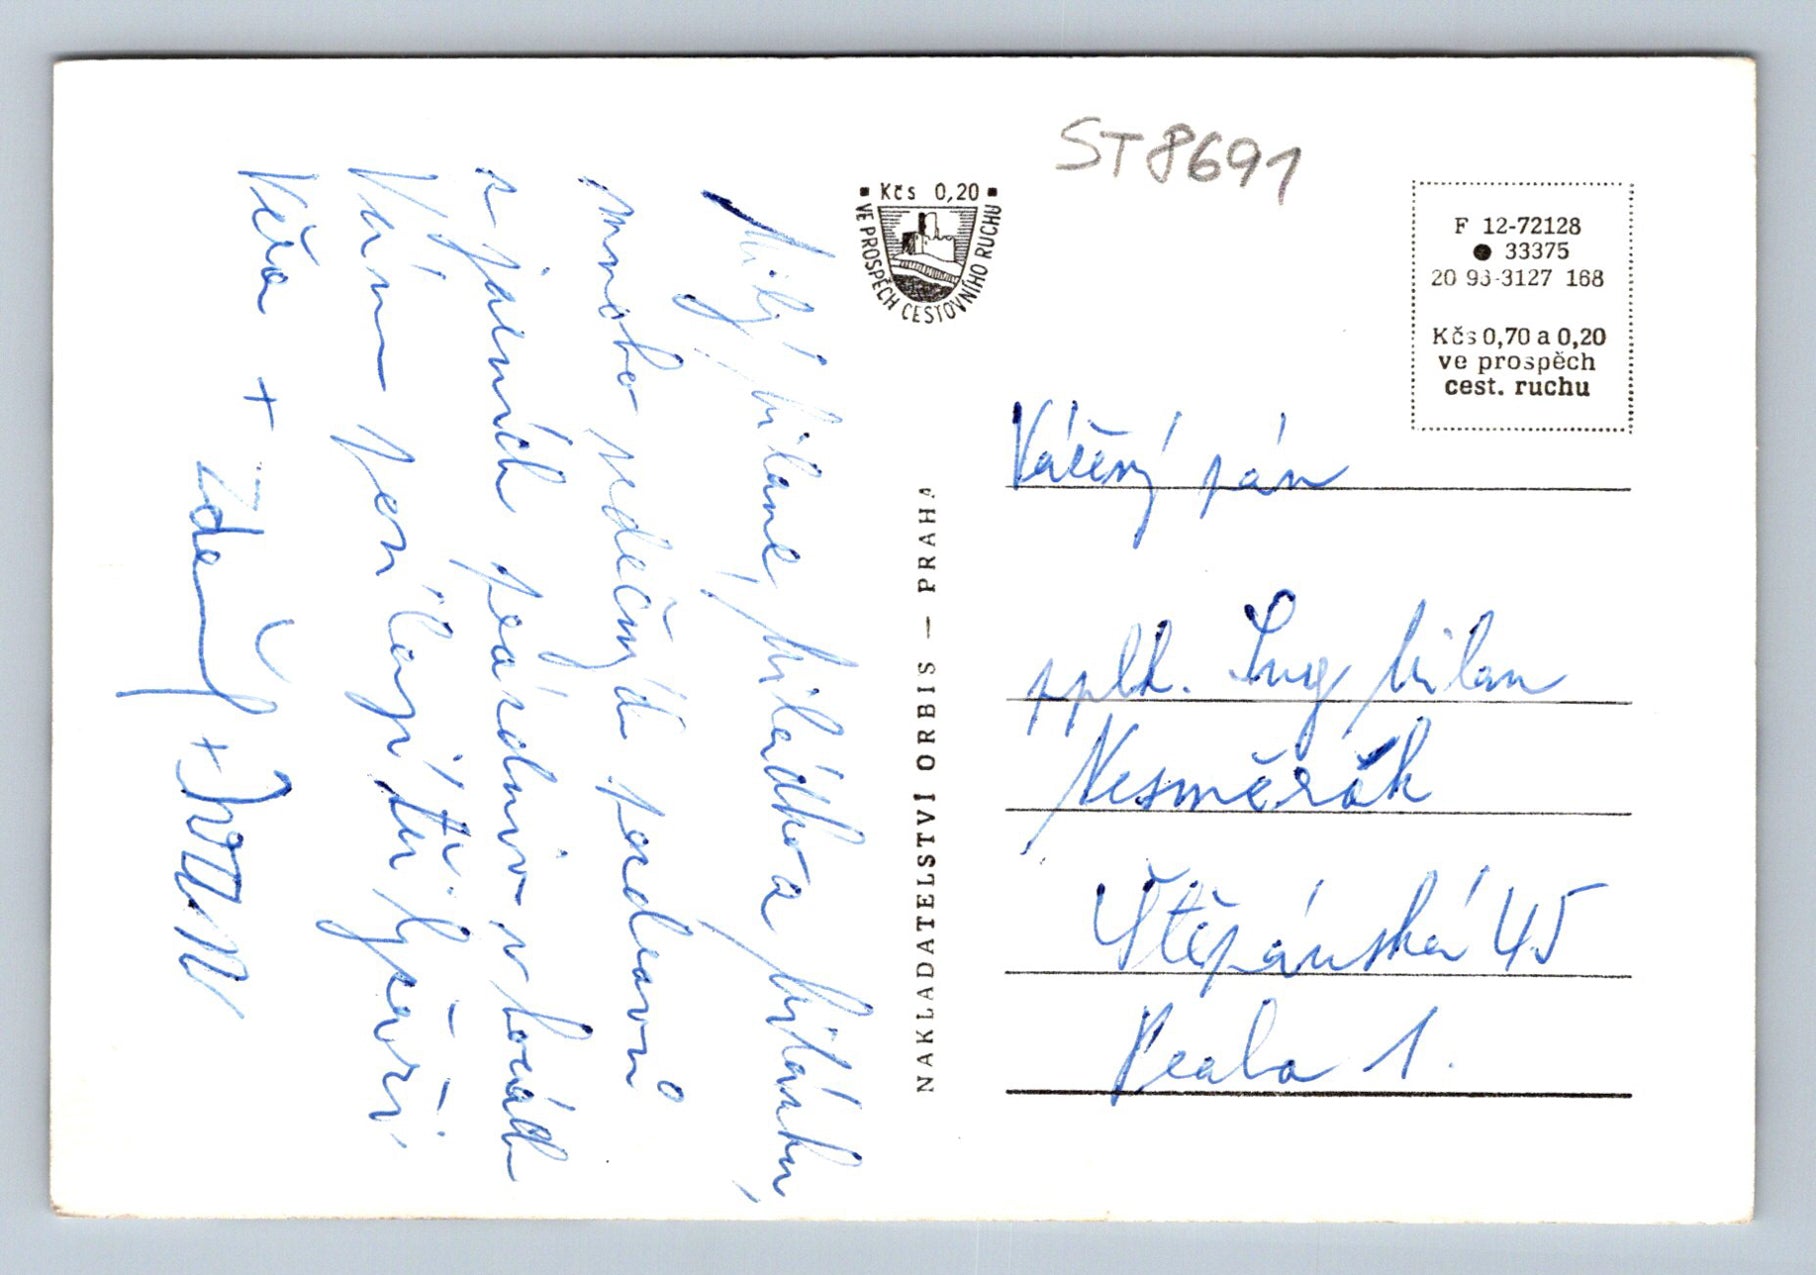 Milý Milane, Miládko a Milánku,
mnoho srdečných pozdravů
z jarních prázdnin v horách
Vám posílají tři lyžaři
Věra + Zdeněk +
Kčs 0,20
VE PROSPĚCH CESTOVNÍHO RUCHU
NAKLADATELSTVÍ ORBIS — PRAHA
ST8691
F 12-72128
33375
20 93-3127 168
Kčs 0,70 a 0,20
ve prospěch
cest. ruchu
Vážený pán
pplk. Ing Milan
Nesměrák
Štěpánská 45
Praha 1.